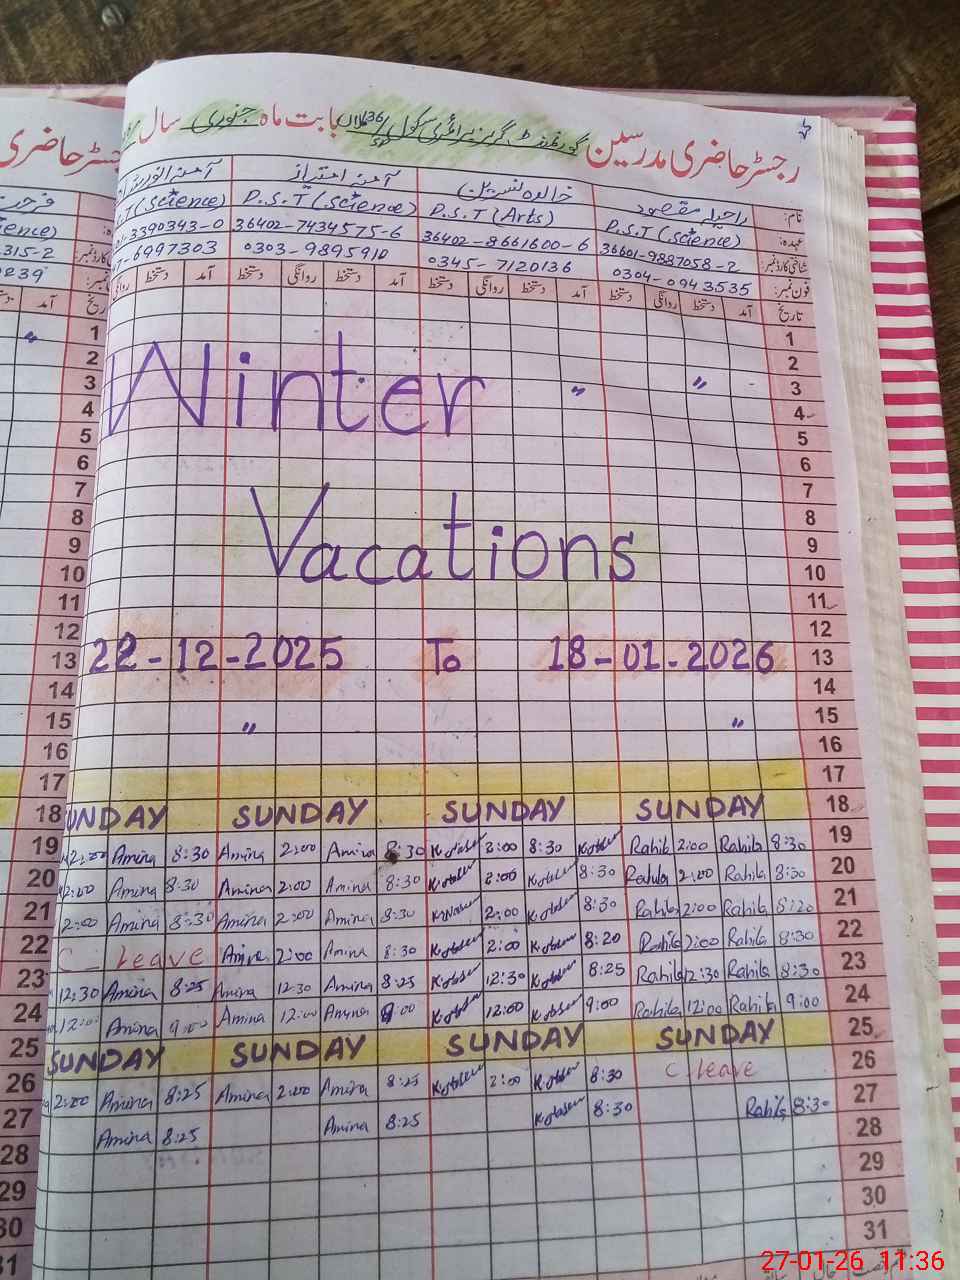 رجسٹر حاضری مدرسین گورنمنٹ گرلز پرائمری سکول 36/SP کلاں بابت ماہ جنوری سال
نام: راحیلہ مقصود خالدہ نسرین آمنہ اعتزاز آمنہ
عہدہ: P.S.T (Science) P.S.T (Arts) P.S.T (Science) S.T (Science)
شناختی کارڈ نمبر: 36601-9887058-2 36402-8661600-6 36402-7434575-6 3390343-0 315-2
فون نمبر: 0304-0943535 0345-7120136 0303-9895910 6997303 0239
تاریخ آمد دستخط روانگی دستخط آمد دستخط روانگی دستخط آمد دستخط روانگی دستخط آمد دستخط
1
2
Winter
3 " "
4
5
6
7
8
Vacations
9
10
11
12
22-12-2025 To 18-01-2026
13
14
15 " "
16
17
18 UNDAY SUNDAY SUNDAY SUNDAY
19 2:00 Amina 8:30 Amina 2:00 Amina 8:30 2:00 8:30 Rahila 2:00 Rahila 8:30
20 2:00 Amina 8:30 Amina 2:00 Amina 8:30 2:00 8:30 Rahila 2:00 Rahila 8:30
21 2:00 Amina 8:30 Amina 2:00 Amina 8:30 2:00 8:30 Rahila 2:00 Rahila 8:20
22 C-leave Amina 2:00 Amina 8:30 2:00 8:20 Rahila 2:00 Rahila 8:30
23 12:30 Amina 8:25 Amina 12:30 Amina 8:25 12:30 8:25 Rahila 12:30 Rahila 8:30
24 12:00 Amina 9:00 Amina 12:00 Amina 9:00 12:00 9:00 Rahila 12:00 Rahila 9:00
25 SUNDAY SUNDAY SUNDAY SUNDAY
26 2:00 Amina 8:25 Amina 2:00 Amina 8:25 2:00 8:30 C leave
27 Amina 8:25 Amina 8:25 8:30 Rahila 8:30
28
29
30
31
27-01-26 11:36